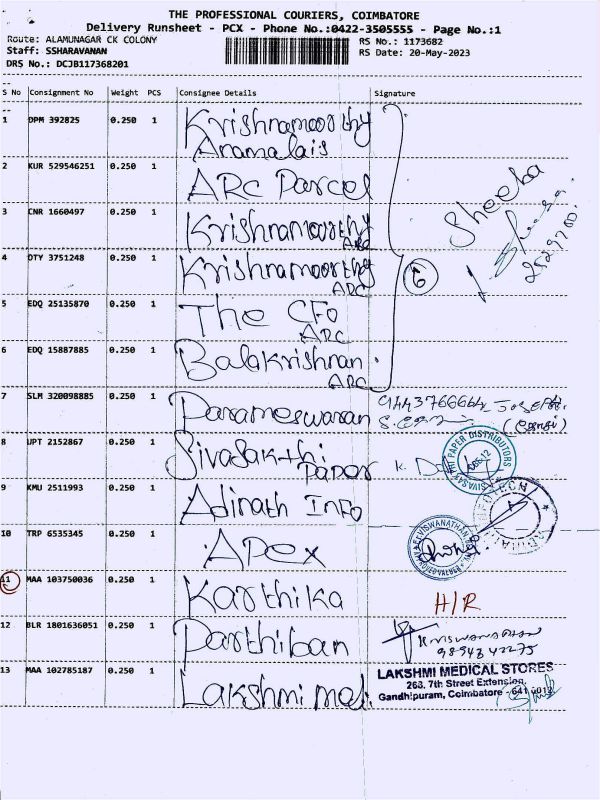 THE PROFESSIONAL COURIERS, COIMBATORE
Delivery Runsheet - PCX - Phone No.:0422-3505555 - Page No.:1
Route: ALAMUNAGAR CK COLONY RS No.: 1173682
Staff: SSHARAVANAN RS Date: 20-May-2023
DRS No.: DCJB117368201
S No Consignment No Weight PCS Consignee Details Signature
1 DPM 392825 0.250 1 Krishnamoorthy
Anamalais
2 KUR 529546251 0.250 1 ARC Parcel
Sheeba
3 CNR 1660497 0.250 1 Krishnamoorthy
ARC
4 OTY 3751248 0.250 1 Krishnamoorthy
ARC
6
5 EDQ 25135870 0.250 1 The CFO
ARC
6 EDQ 15887885 0.250 1 Balakrishnan
ARC
7 SLM 320098885 0.250 1 Parameswaran
8 UPT 2152867 0.250 1 Sivasakthi
Paper
9 KMU 2511993 0.250 1 Adinath Info
10 TRP 6535345 0.250 1 Apex
11 MAA 103750036 0.250 1 Karthika H/R
12 BLR 1801636051 0.250 1 Parthiban
13 MAA 102785187 0.250 1 Lakshmi
LAKSHMI MEDICAL STORES
268, 7th Street Extension,
Gandhipuram, Coimbatore - 641 012